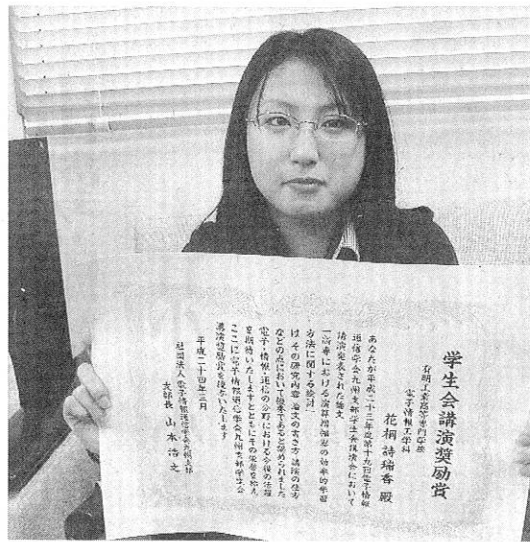 学生会講演奨励賞
有明工業高等専門学校
電子情報工学科
花桐 詩瑞香 殿
あなたが平成二十三年度第十九回電子情報
通信学会九州支部学生会講演会において
講演発表された論文
「高専における演算増幅器の効率的学習
方法に関する検討」
は その研究内容 論文の書き方 講演の仕方
などの点において優秀であると認められました
電子・情報・通信の分野における今後の活躍
を期待いたしますとともにその栄誉を称え
ここに電子情報通信学会九州支部学生会
講演奨励賞を授与いたします
平成二十四年三月
社団法人 電子情報通信学会九州支部
支部長 山本 浩之